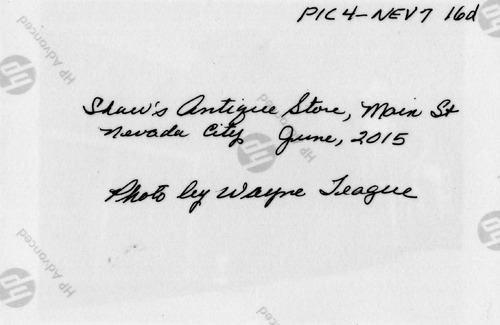 PIC 4-NEV7 16d
Shaw's Antique Store, Main St
Nevada City June, 2015
Photo by Wayne Teague
HP Advanced
hp
HP Advanced
hp
HP Advanced
hp
HP Advanced